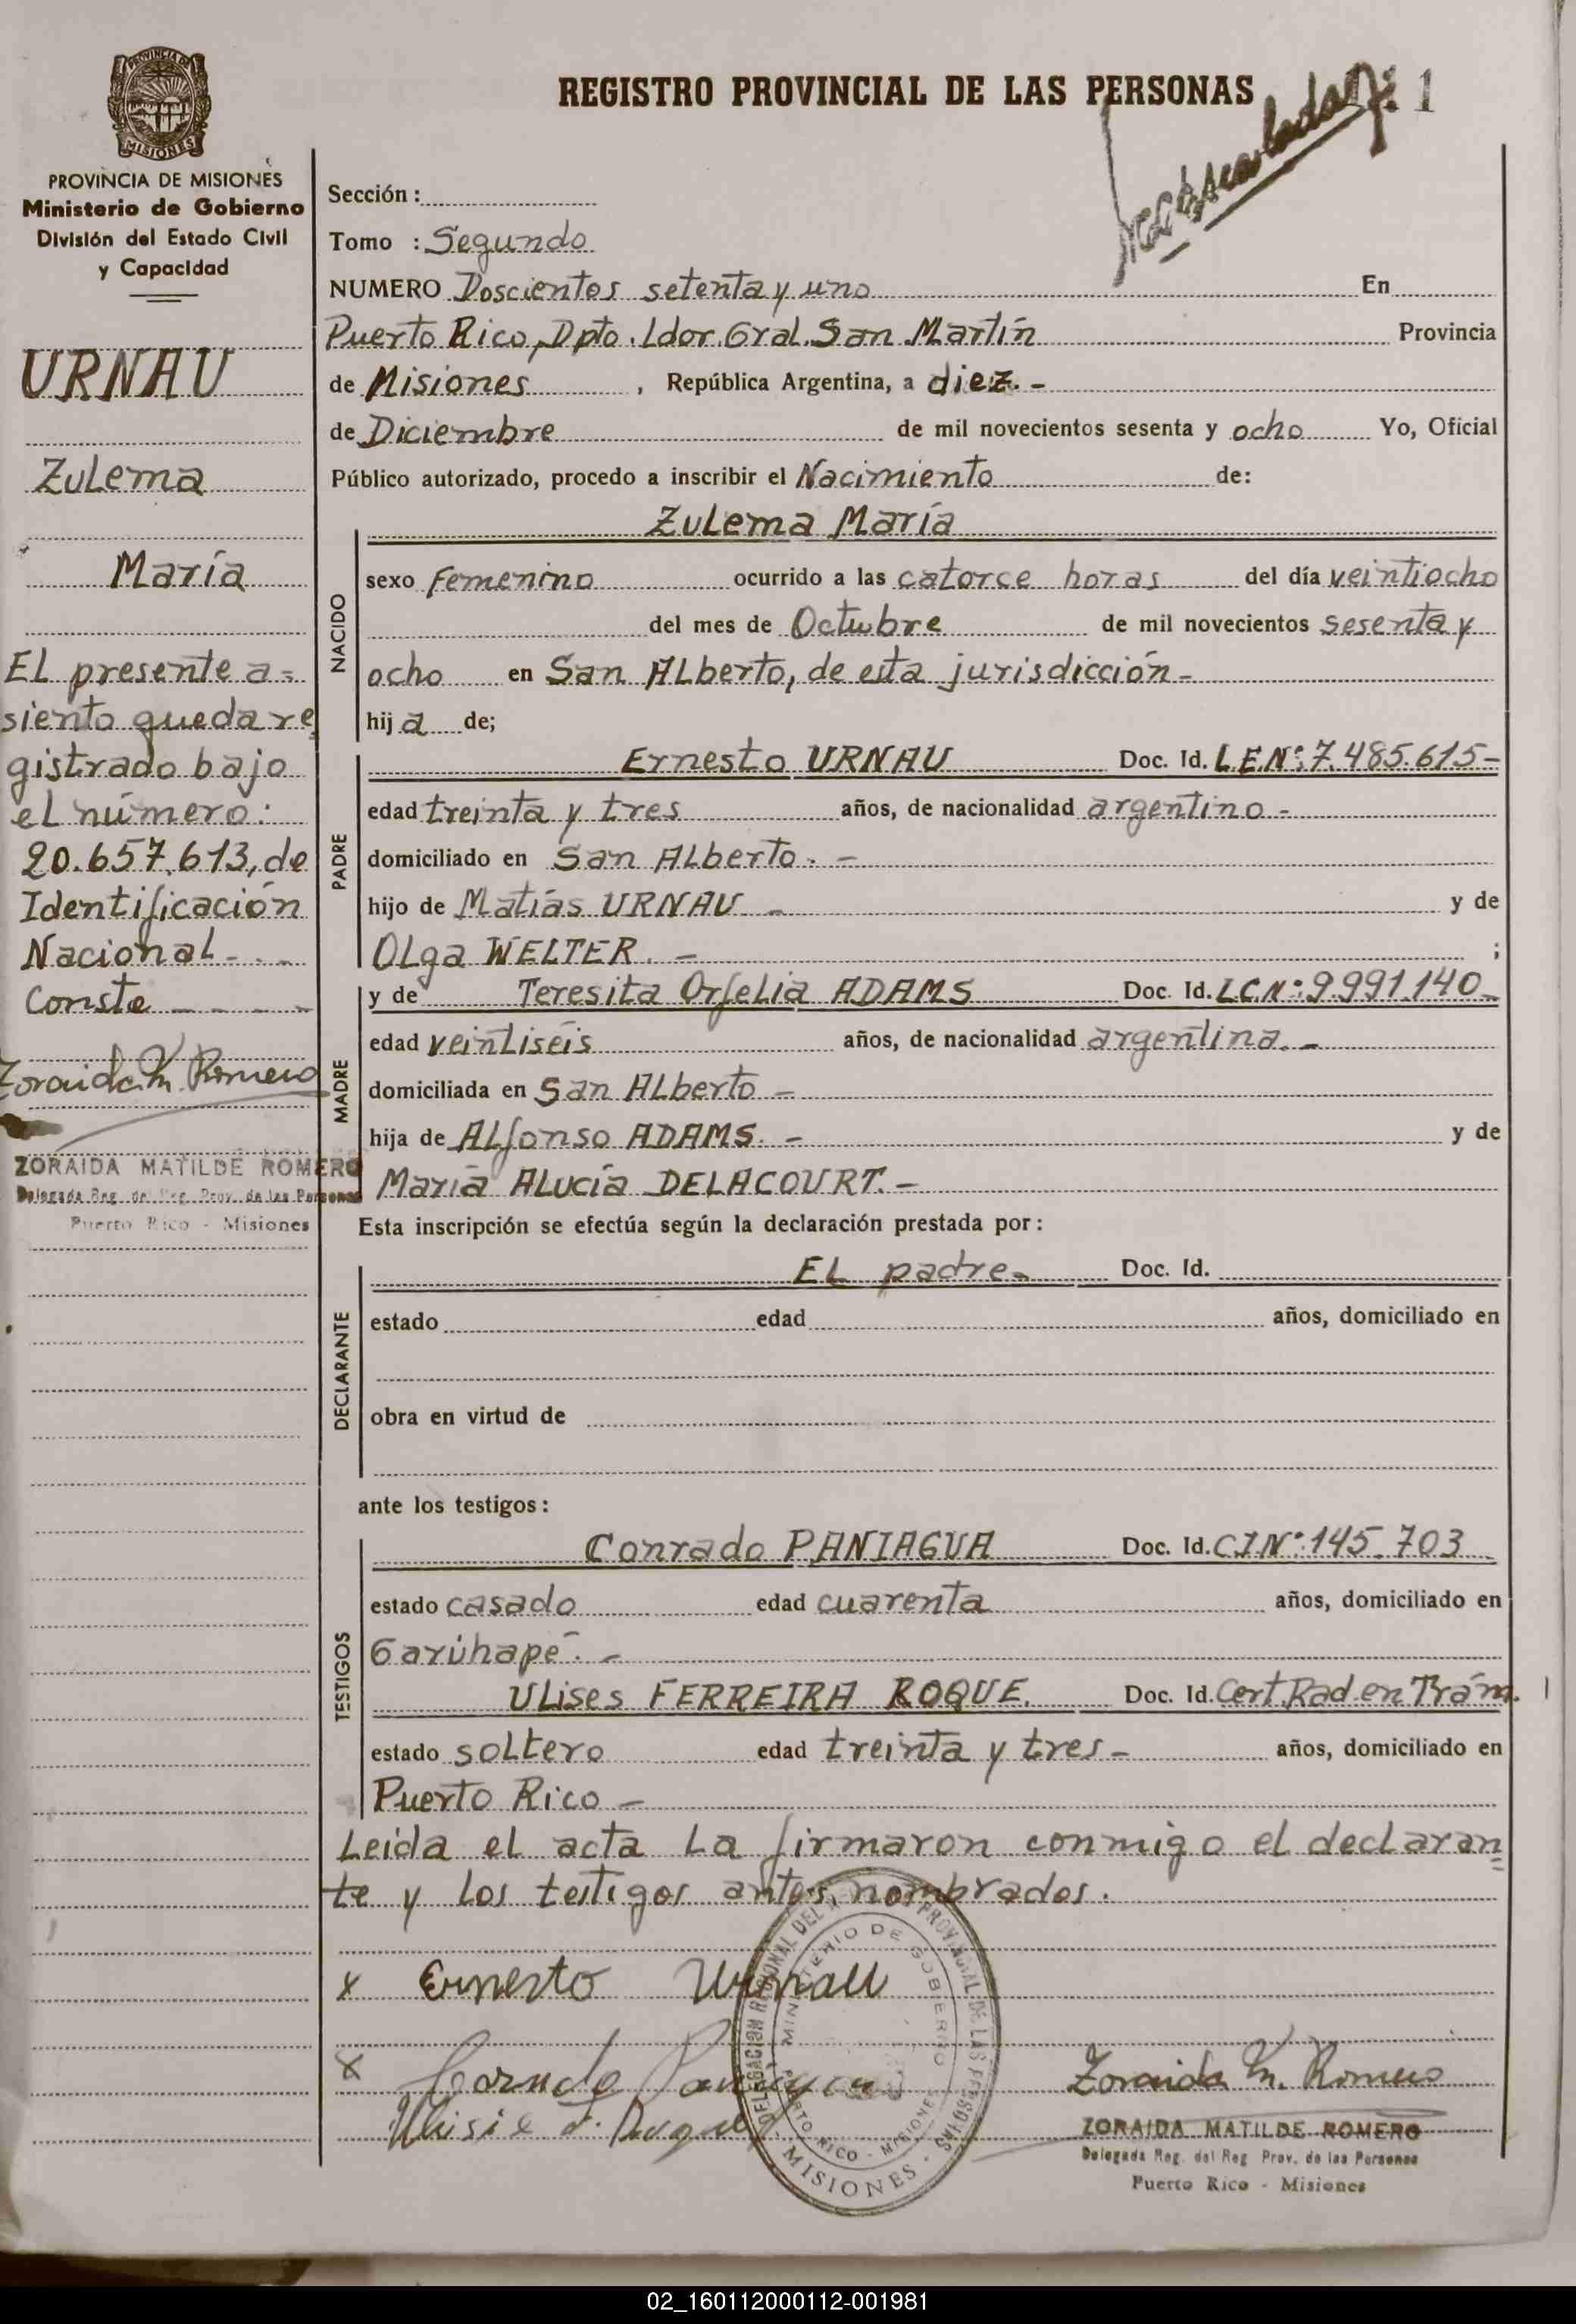 REGISTRO PROVINCIAL DE LAS PERSONAS
Nº 1
PROVINCIA DE MISIONES
MISIONES
PROVINCIA DE MISIONES
Ministerio de Gobierno
División del Estado Civil
y Capacidad
URNAU
Zulema
María
El presente a=
siento queda re
gistrado bajo
el número:
20.657.613, de
Identificación
Nacional - . -
Conste - - - -
Zoraida M. Romero
ZORAIDA MATILDE ROMERO
Delegada Reg. del Reg. Prov. de las Personas
Puerto Rico - Misiones
Sección :
Tomo : Segundo
NUMERO Doscientos setenta y uno En
Puerto Rico, Dpto. Ldor. Gral. San Martín Provincia
de Misiones , República Argentina, a diez. -
de Diciembre de mil novecientos sesenta y ocho Yo, Oficial
Público autorizado, procedo a inscribir el Nacimiento de:
Zulema María
NACIDO
sexo Femenino ocurrido a las catorce horas del día veintiocho
del mes de Octubre de mil novecientos sesenta y
ocho en San Alberto, de esta jurisdicción -
hija de;
PADRE
Ernesto URNAU Doc. Id. L.E.Nº: 7.485.615 -
edad treinta y tres años, de nacionalidad argentino -
domiciliado en San Alberto. -
hijo de Matías URNAU - y de
Olga WELTER. - ;
MADRE
y de Teresita Orfelia ADAMS Doc. Id. L.C.Nº: 9.991.140 -
edad veintiséis años, de nacionalidad argentina. -
domiciliada en San Alberto -
hija de Alfonso ADAMS. - y de
María Alucía DELACOURT. -
Esta inscripción se efectúa según la declaración prestada por :
DECLARANTE
El padre - Doc. Id.
estado edad años, domiciliado en
obra en virtud de
ante los testigos :
TESTIGOS
Conrado PANIAGUA Doc. Id. C.I.Nº: 145.703
estado casado edad cuarenta años, domiciliado en
Garúhapé. -
Ulises FERREIRA ROQUE. Doc. Id. Cert. Rad en Trám.
estado soltero edad treinta y tres - años, domiciliado en
Puerto Rico -
Leída el acta la firmaron conmigo el declaran=
te y los testigos antes nombrados.
x Ernesto Urnau
x
Zoraida M. Romero
ZORAIDA MATILDE ROMERO
Delegada Reg. del Reg Prov. de las Personas
Puerto Rico - Misiones
DELEGACION REGIONAL DEL PROVINCIAL DE LAS PERSONAS
MINISTERIO DE GOBIERNO
PUERTO RICO - MISIONES
MISIONES
02_160112000112-001981